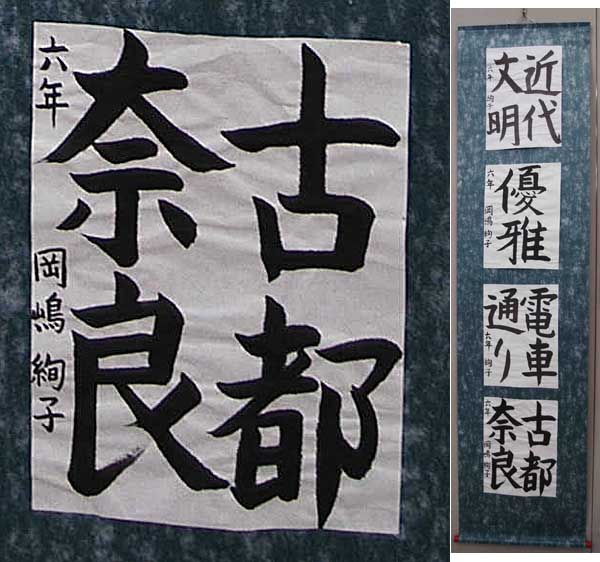 古都
奈良
六年 岡嶋絢子
近代
文明
六年 絢子
優雅
六年 岡嶋絢子
電車
通り
六年 絢子
古都
奈良
六年 岡嶋絢子